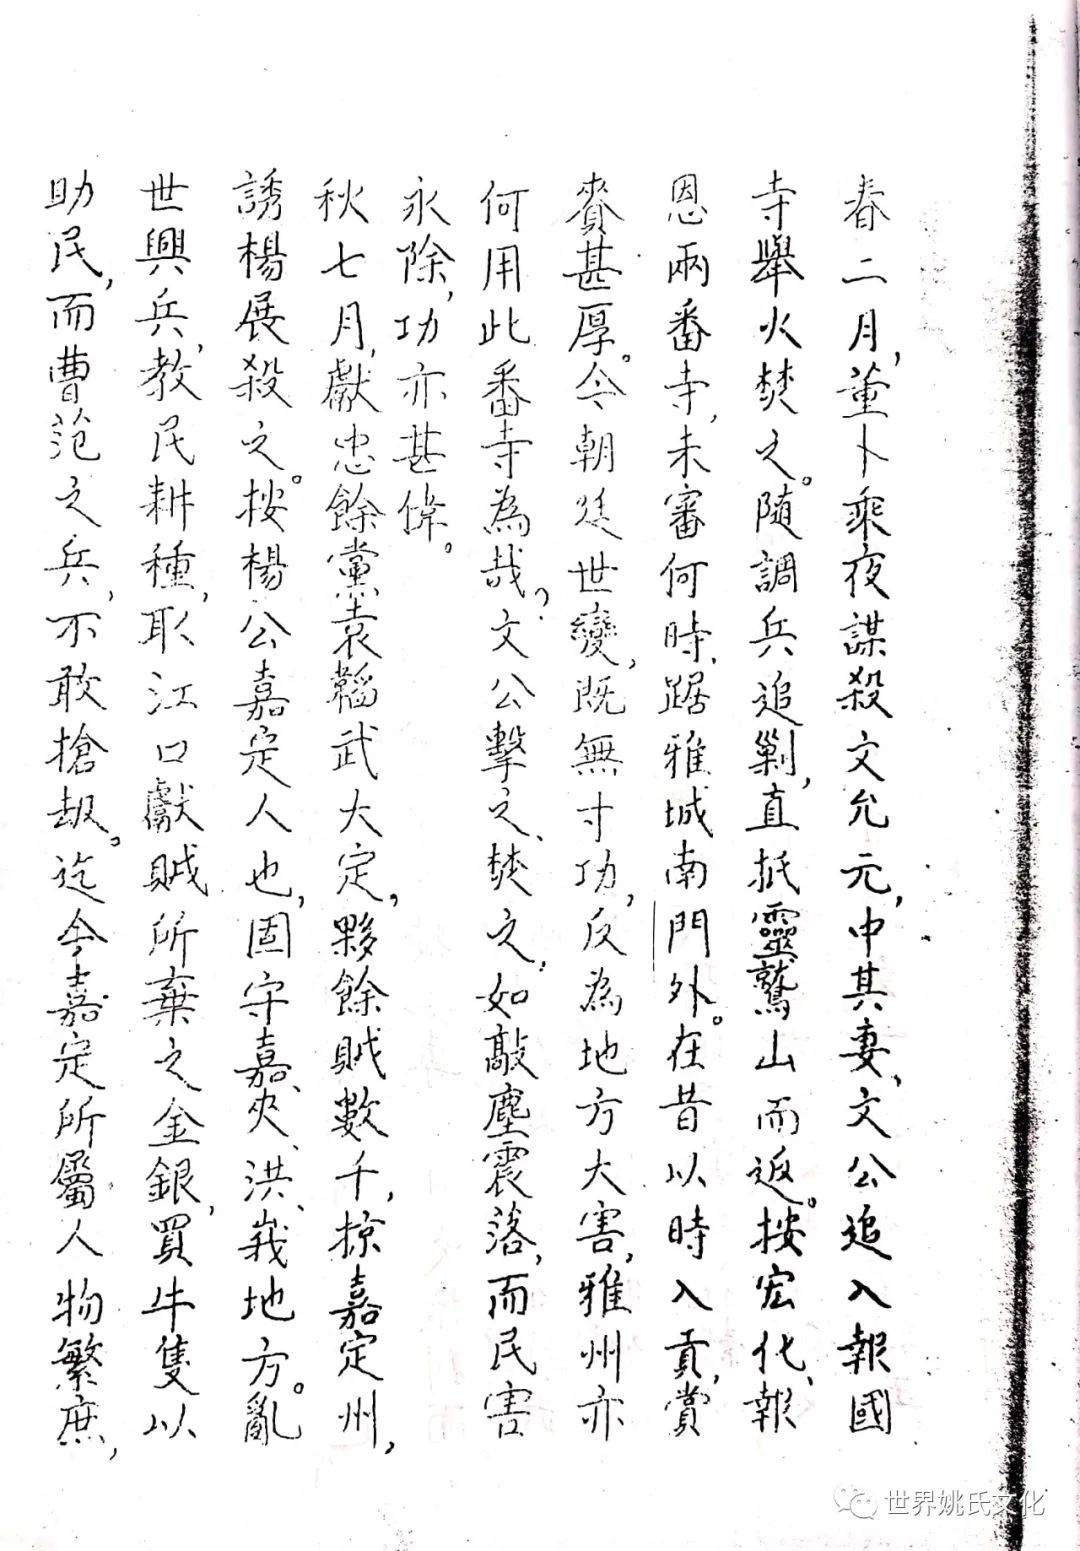 春二月,董卜乘夜謀殺文允元,中其妻,文公追入報國
寺舉火焚之。随調兵追剿,直抵靈鷲山而返。按宏化、報
恩兩番寺,未審何時踞雅城南門外。在昔以時入貢,賞
賚甚厚。今朝廷世變,既無寸功,反為地方大害,雅州亦
何用此番寺為哉?文公擊之、焚之,如敲塵震落,而民害
永除,功亦甚偉。
秋七月,獻忠餘黨袁韜武大定,夥餘賊數千,掠嘉定州,
誘楊展殺之。按楊公嘉定人也,固守嘉、夾、洪、峩地方。亂
世興兵,教民耕種,取江口獻賊所棄之金銀,買牛隻以
助民,而曹范之兵,不敢搶劫。迄今嘉定所屬人物繁庶,
世界姚氏文化